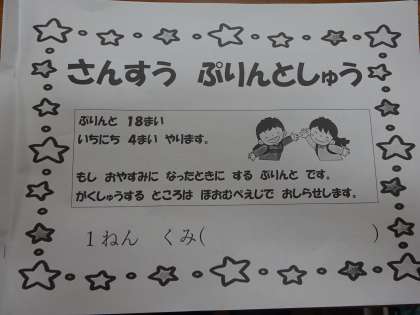 さんすう ぷりんとしゅう
ぷりんと 18まい
いちにち 4まい やります。
もし おやすみに なったときに する ぷりんと です。
がくしゅうする ところは ほおむぺえじで おしらせします。
1ねん くみ( )